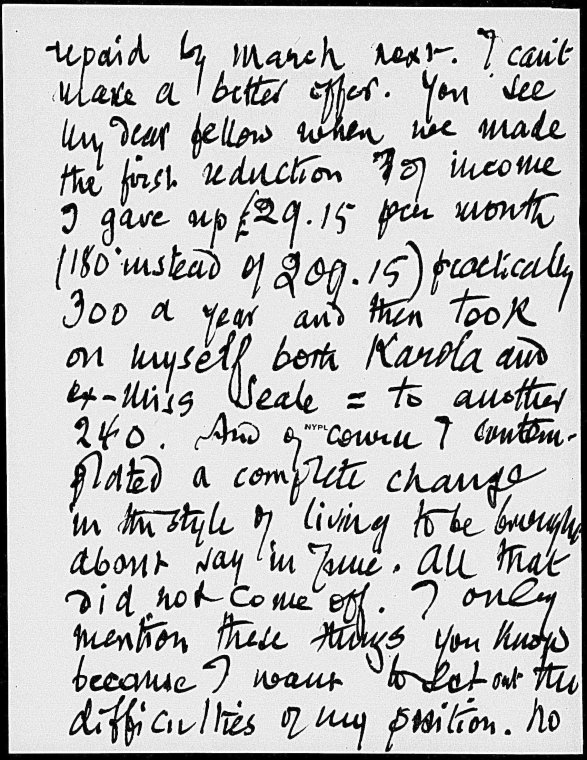 repaid by March next. I can't
make a better offer. You see
my dear fellow when we made
the first reduction of income
I gave up £29.15 per month
(180 instead of 209.15) practically
300 a year and then took
on myself both Karola and
ex-Miss Seale = to another
240. And of course I contem-
NYPL
plated a complete change
in the style of living to be brought
about say in June. All that
did not come off. I only
mention these things you know
because I want to set out the
difficulties of my position. No